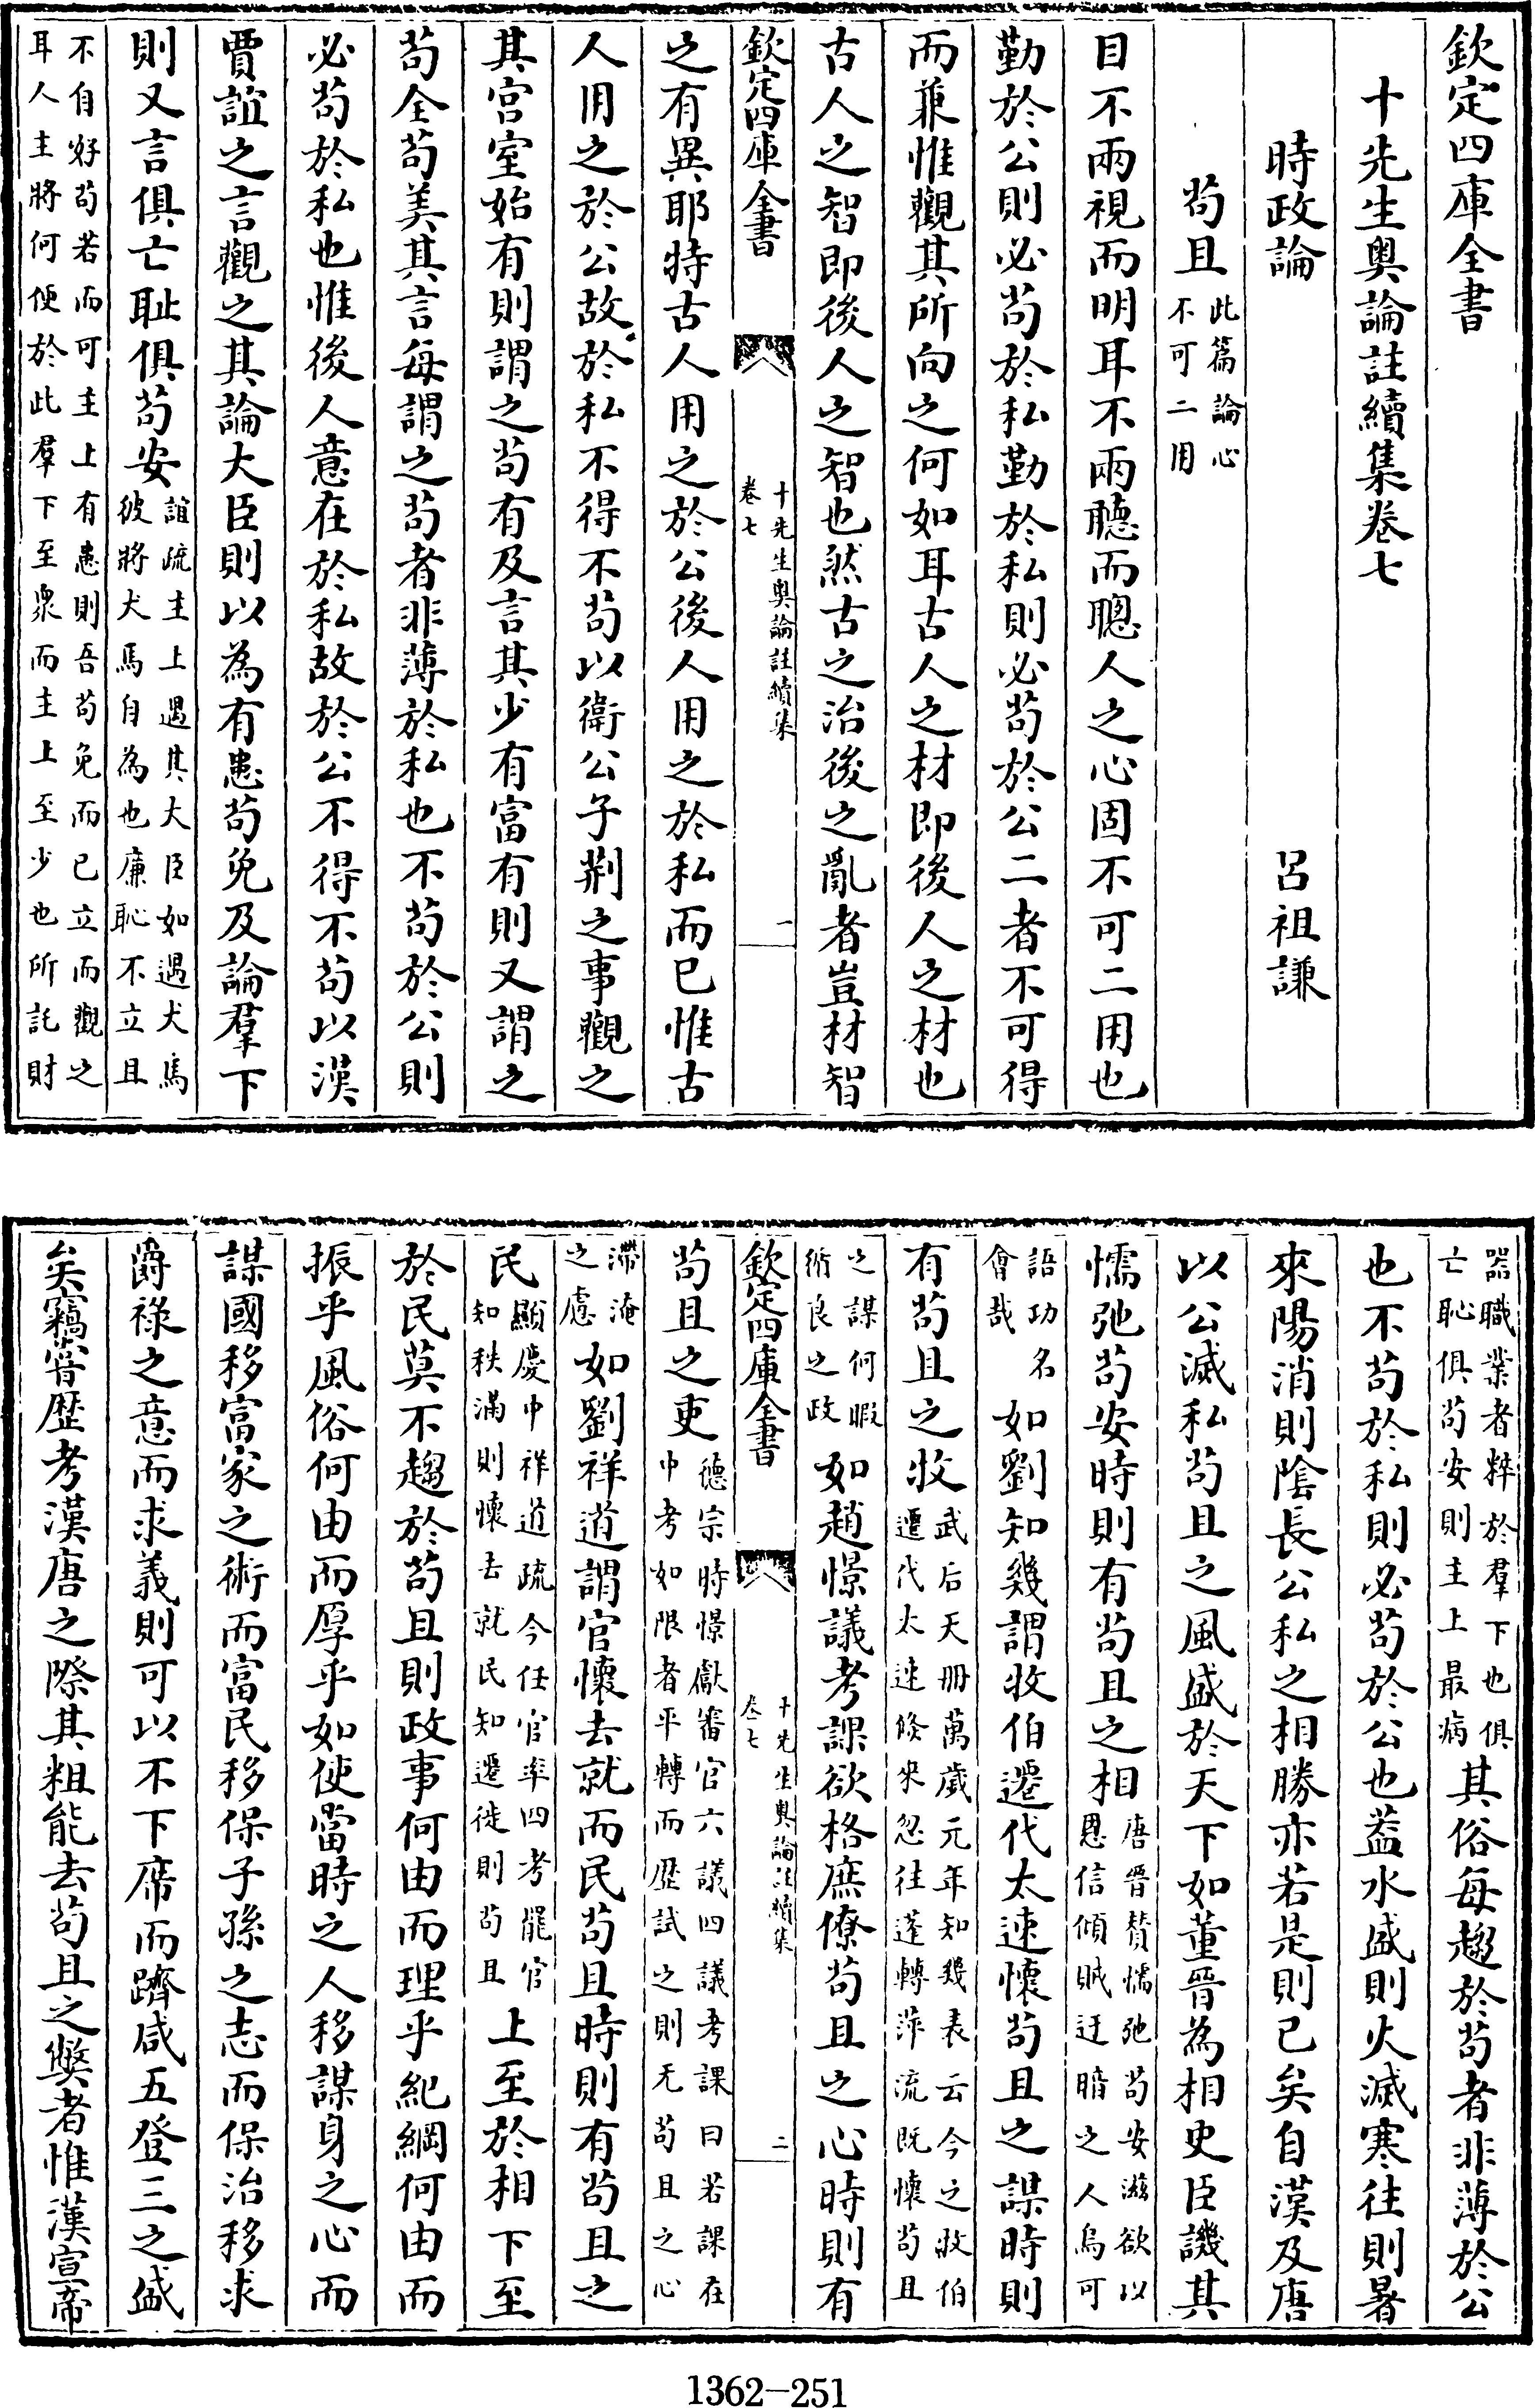 欽定四庫全書
十先生奥論註續集卷七
時政論　呂祖謙
苟且此篇論心不可二用
目不兩視而明耳不兩聽而聰人之心固不可二用也
勤於公則必苟於私勤於私則必苟於公二者不可得
而兼惟觀其所向之何如耳古人之材即後人之材也
古人之智即後人之智也然古之治後之亂者豈材智
欽定四庫全書　十先生奥論註續集卷七　一
之有異耶特古人用之於公後人用之於私而已惟古
人用之於公故於私不得不苟以衛公子荆之事觀之
其宫室始有則謂之苟有及言其少有富有則又謂之
苟全苟美其言每謂之苟者非薄於私也不苟於公則
必苟於私也惟後人意在於私故於公不得不苟以漢
賈誼之言觀之其論大臣則以為有患苟免及論羣下
則又言俱亡耻俱苟安誼疏主上遇其大臣如遇犬馬彼將犬馬自為也廉恥不立且
不自好苟若而可主上有患則吾苟免而已立而觀之耳人主將何便於此羣下至衆而主上至少也所託財
器職業者粹於羣下也俱亡恥俱苟安則主上最病其俗每趨於苟者非薄於公
也不苟於私則必苟於公也蓋水盛則火滅寒往則暑
來陽消則陰長公私之相勝亦若是則已矣自漢及唐
以公滅私苟且之風盛於天下如董晉為相史臣譏其
懦弛苟安時則有苟且之相唐晉賛懦弛苟安滋欲以恩信傾賊迂暗之人烏可
語功名會哉如劉知幾謂牧伯遷代太速懷苟且之謀時則
有苟且之牧武后天册萬歲元年知幾表云今之牧伯遷代太速倏來忽往蓬轉萍流既懷苟且
之謀何暇術良之政如趙憬議考課欲格庶僚苟且之心時則有
欽定四庫全書　十先生奥論註續集卷七　二
苟且之吏德宗時憬獻審官六議四議考課曰若課在中考如限者平轉而歴試之則无苟且之心
滯淹之慮如劉祥道謂官懷去就而民苟且時則有苟且之
民顯慶中祥道疏今任官率四考罷官知秩滿則懷去就民知遷徙則苟且上至於相下至
於民莫不趨於苟且則政事何由而理乎紀綱何由而
振乎風俗何由而厚乎如使當時之人移謀身之心而
謀國移富家之術而富民移保子孫之志而保治移求
爵祿之意而求義則可以不下席而躋咸五登三之盛
矣竊甞歴考漢唐之際其粗能去苟且之弊者惟漢宣帝
1362-251